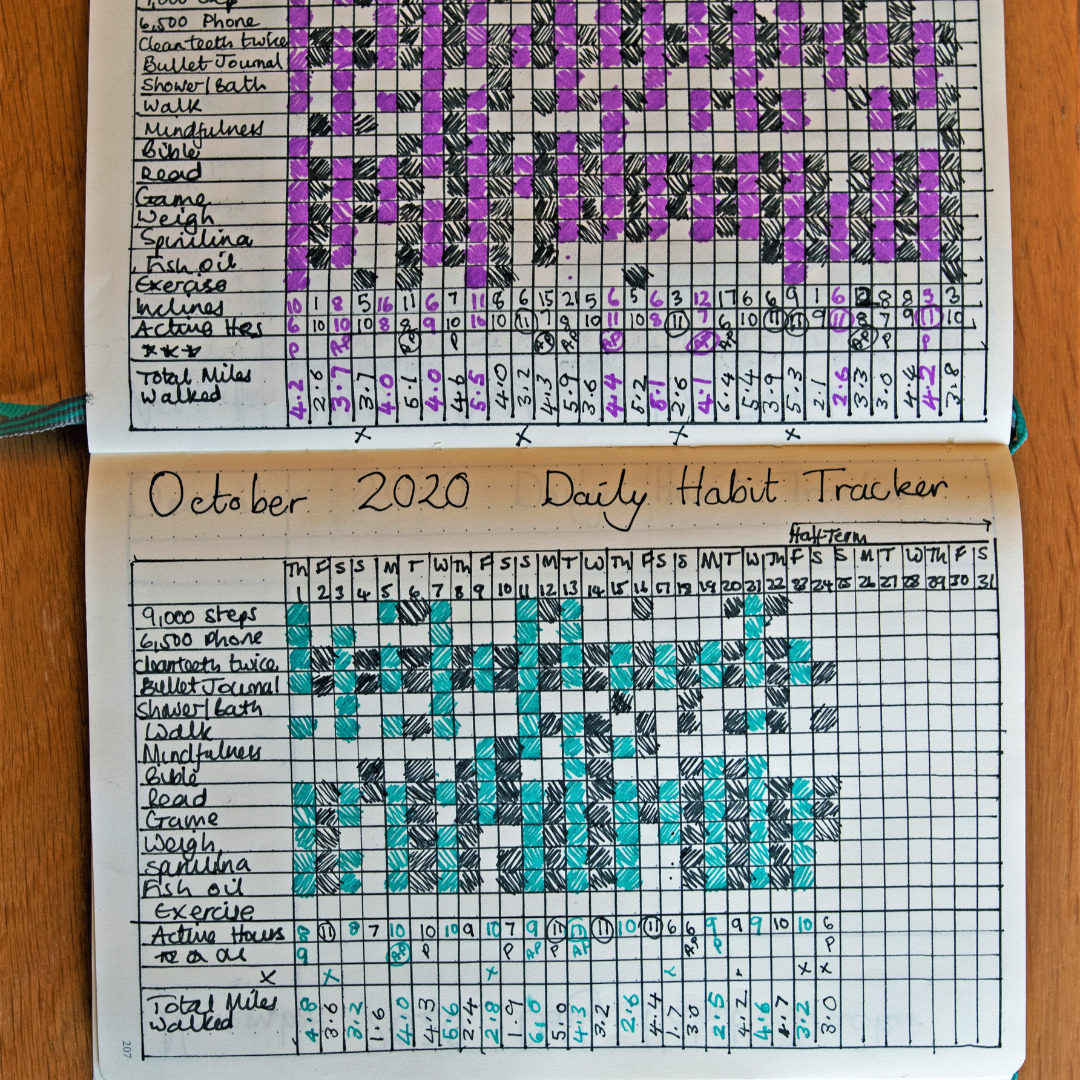 6,500 Phone
Cleanteeth twice
Bullet Journal
Shower/Bath
Walk
Mindfulness
Bible
Read
Game
Weigh
Spirilina
Fish oil
Exercise
Inclines 10 1 8 5 16 11 6 7 11 8 6 15 21 5 6 5 6 3 12 17 6 6 9 1 6 2 8 8 5 3
Acting Hrs
***
Total Miles
Walked 4.2 2.6 3.7 3.7 4.0 5.1 4.0 4.6 5.5 4.0 3.2 4.3 5.9 3.6 4.4 5.2 5.1 2.6 4.1 6.4 5.4 3.9 5.3 2.1 2.6 3.3 3.0 4.4 4.2 3.8
x x x x
October 2020 Daily Habit Tracker
Half-Term
Th F S S M T W Th F S S M T W Th F S S M T W Th F S S M T W Th F S
1 2 3 4 5 6 7 8 9 10 11 12 13 14 15 16 17 18 19 20 21 22 23 24 25 26 27 28 29 30 31
9,000 steps
6,500 Phone
Cleanteeth twice
Bullet Journal
Shower/Bath
Walk
Mindfulness
Bible
Read
Game
Weigh
Spirulina
Fish oil
Exercise
Active Hours 8 11 8 7 10 10 10 9 10 7 9 11 11 11 10 11 6 6 9 9 9 10 10 6
x x x x x
Total Miles
Walked 4.8 3.6 3.2 1.6 4.0 4.3 5.6 2.4 2.8 1.9 6.0 5.0 4.3 3.2 2.6 4.4 1.7 3.0 2.5 4.2 4.6 4.7 3.2 3.0
207